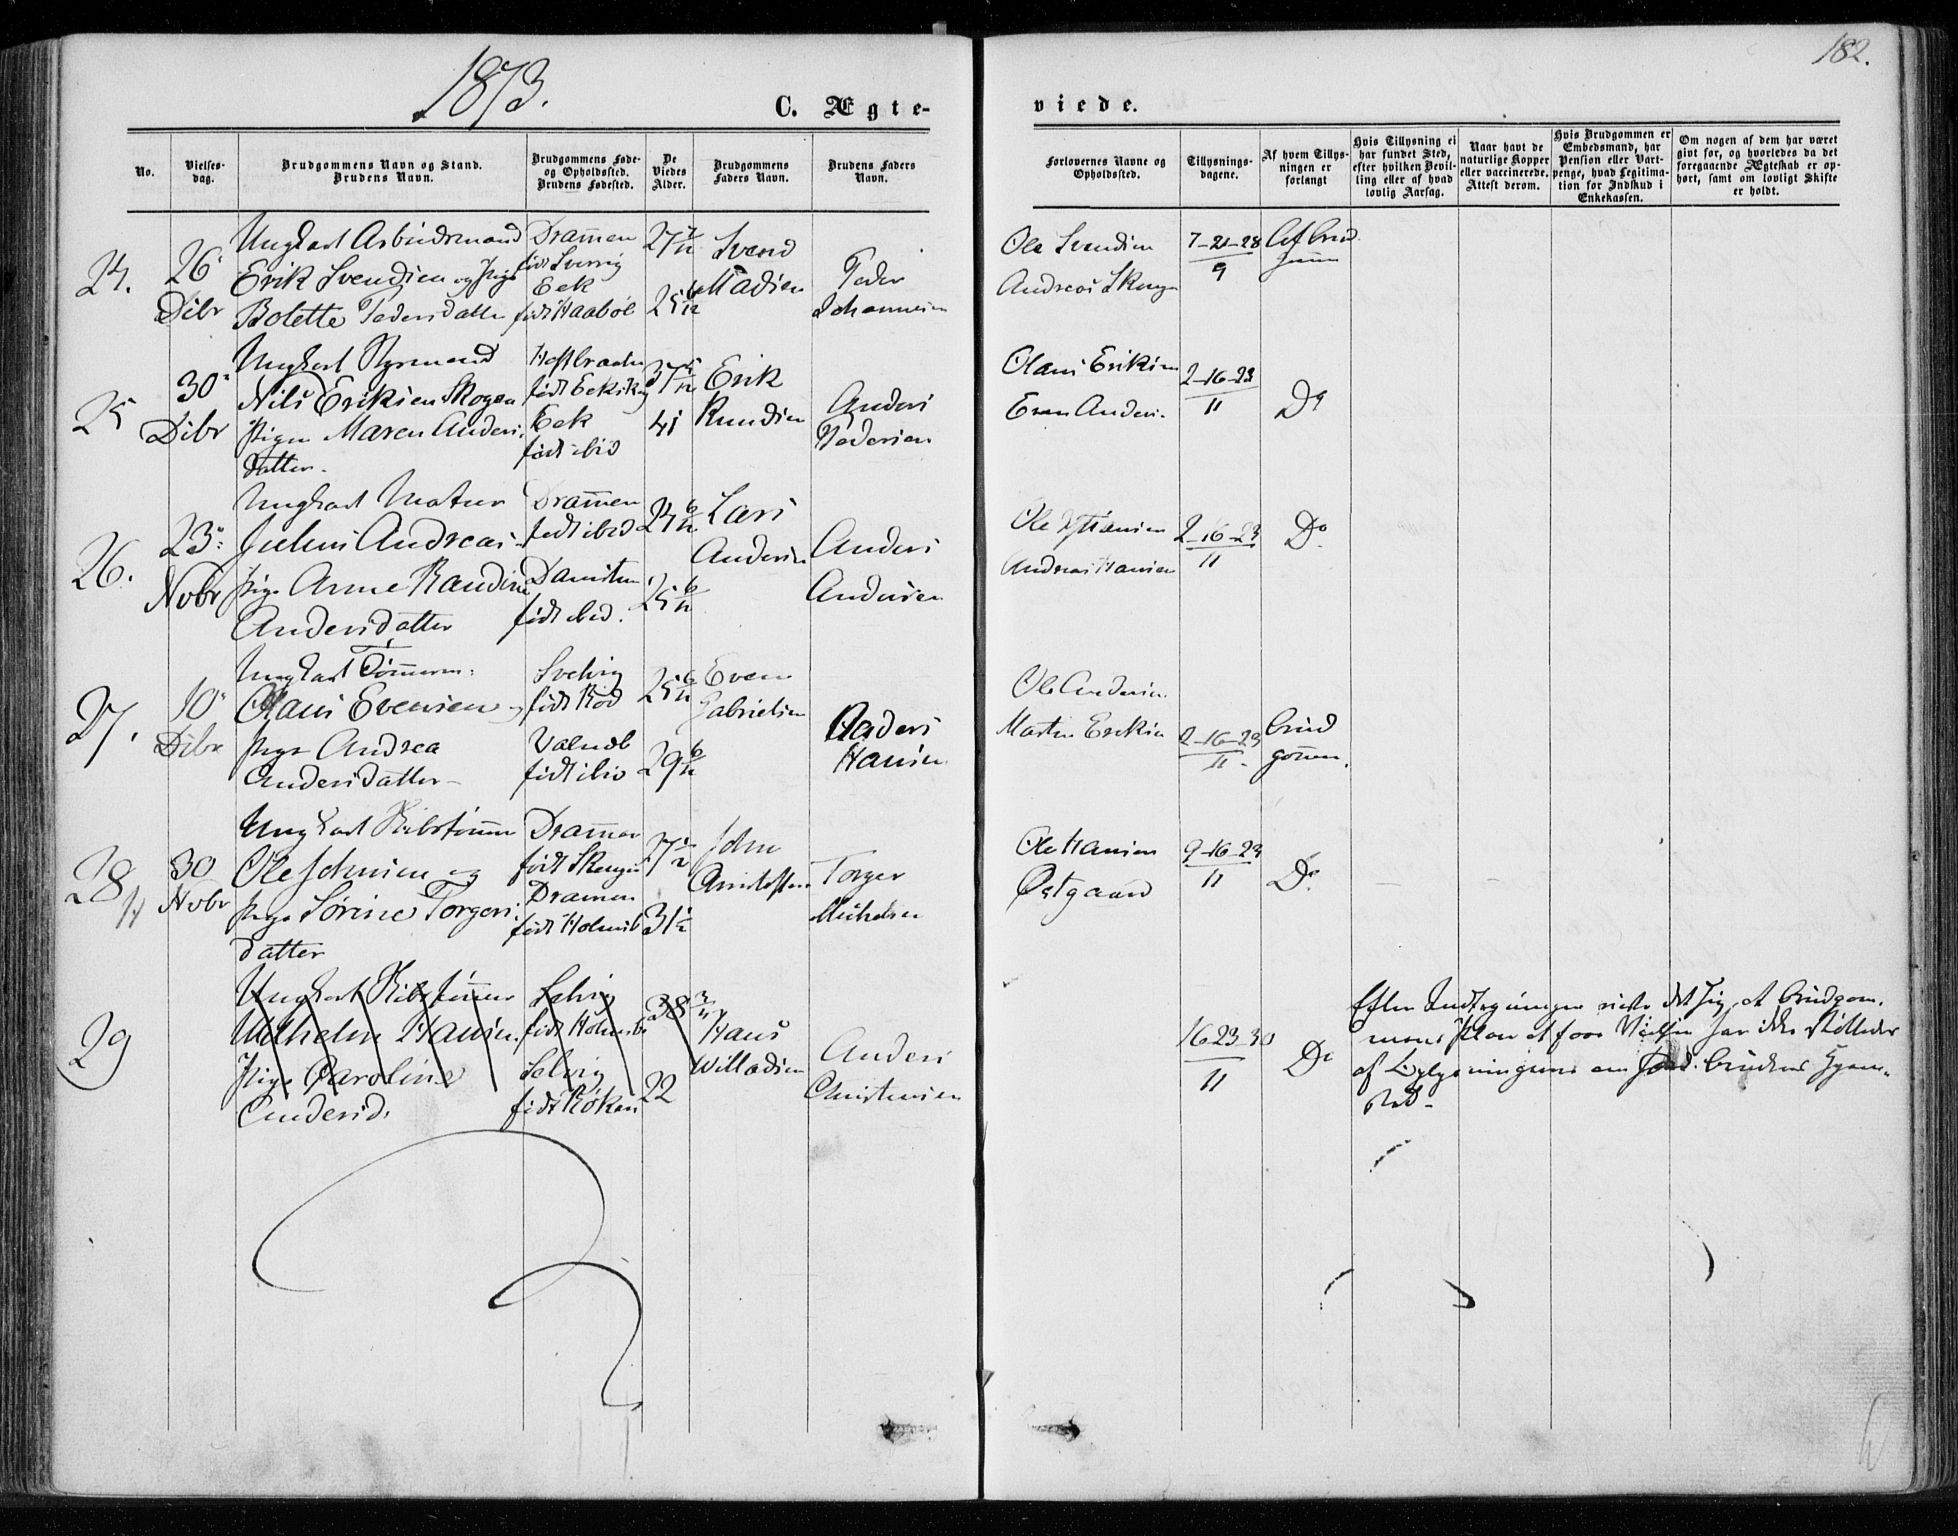 1873.
182.
C. Ægte-
viede.
No.
Vielses-
dag.
Brudgommens Navn og Stand.
Brudens Navn.
Brudgommens Føde-
og Opholdssted.
Brudens Fødested.
De
Viedes
Alder.
Brudgommens
Faders Navn.
Brudens Faders
Navn.
Forlovernes Navne og
Opholdssted.
Tillysnings-
dagene.
Af hvem Tillys-
ningen er
forlangt
Hvis Tillysning ei
har fundet Sted,
efter hvilken Bevil-
ling eller af hvad
lovlig Aarsag.
Naar havt de
naturlige Kopper
eller vaccinerede.
Attest derom.
Hvis Brudgommen er
Embedsmand, har
Pension eller Vart-
penge, hvad Legitima-
tion for Indskud i
Enkekassen.
Om nogen af dem har været
gift før, og hvorledes da det
foregaaende Ægteskab er op-
hørt, samt om lovligt Skifte
er holdt.
24.
26
Dibr
Ungkarl Arbeidsmand
Erik Svendsen og Pige
Bolette Pedersdatter
Dramen
født Sverrig
Eek
født Haabøl
27 7/12
25 6/12
Svend
Madsen
Peder
Johannesen
Ole Svendsen
Andreas Skoug
7-21-28
9
Af Brud
gom
25
30
Dibr
Ungkarl Styrmand
Nils Eriksen Skogen
Pigen Maren Anders
datter.
født Eek
Eek
født ibid
37 5/12
41
Erik
Knudsen
Anders
Pedersen
Olaus Eriksen
Even Anders.
2-16-23
11
Do
26.
23
Nobr
Ungkarl Matros
Julius Andreas
Pige Anne Randine
Andersdatter
Dramen
født ibid
født ibid.
24 6/12
25 6/12
Lars
Andersen
Anders
Andersen
Ole Hansen
Andreas Hansen
2-16-23
11
Do
27.
10
Dibr
Ungkarl Tømerm:
Olaus Evensen
Pige Andrea
Andersdatter
Svelvig
født Rød
født ibid
25 6/12
29 6/12
Even
Gabrielsen
Anders
Hansen
Ole Andersen
Martin Eriksen
2-16-23
11
Brud
gomen.
28
30
Nobr
Ungkarl Skibstømer
Ole Johnsen og
Pige Sørine Torgers
datter
Dramen
født
Dramen
født Holmsb
27 1/2
31 1/2
John
Torger
Michelsen
Ole Hansen
Østgaard
9-16-23
11
Do
29
Ungkarl Skibstømer
Wilhelm Hansen.
Pige Caroline
Andersd.
Selvig
født Holmsb
Selvig
født Røken
38 3/4
22
Hans
Willadsen
Anders
Christensen
16-23-30
11
Do
Efter Indtegningen viste det sig, at Brudgom-
af Lysningerne om Brudens Hjem-
sted